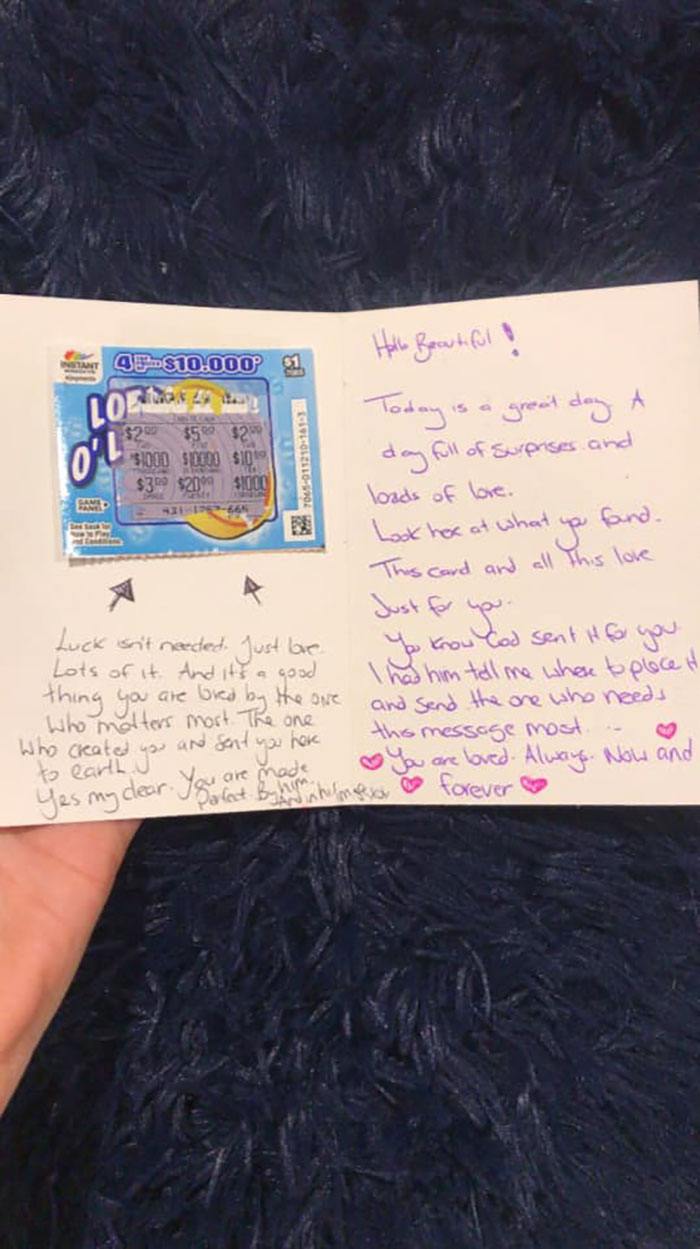 INSTANT
4 TOP PRIZES OF $10,000*
$1
LO
O'L
$2.00 $5.00 $2.00
$1000 $10000 $10.00
$3.00 $20.00 $1000
431-
GAME PANEL
See back for
How to Play
and Conditions
7065-011210-161-3
Luck isn't needed. Just love.
Lots of it. And it's a good
thing you are loved by the one
who matters most. The one
who created you and sent you here
to earth.
Yes my dear. You are made
Perfect. By him.
And in his image.
Hello Beautiful!
Today is a great day. A
day full of surprises and
loads of love.
Look here at what you found.
This card and all this love
Just for you.
You know God sent it for you.
I had him tell me where to place it
and send the one who needs
this message most.
You are loved. Always. Now and
forever